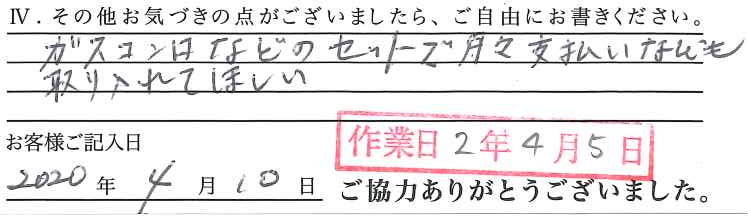 Ⅳ．その他お気づきの点がございましたら、ご自由にお書きください。
ガスコンロなどのセットで月々支払いなんも
取り入れてほしい
お客様ご記入日
作業日2年4月5日
2020年4月10日 ご協力ありがとうございました。